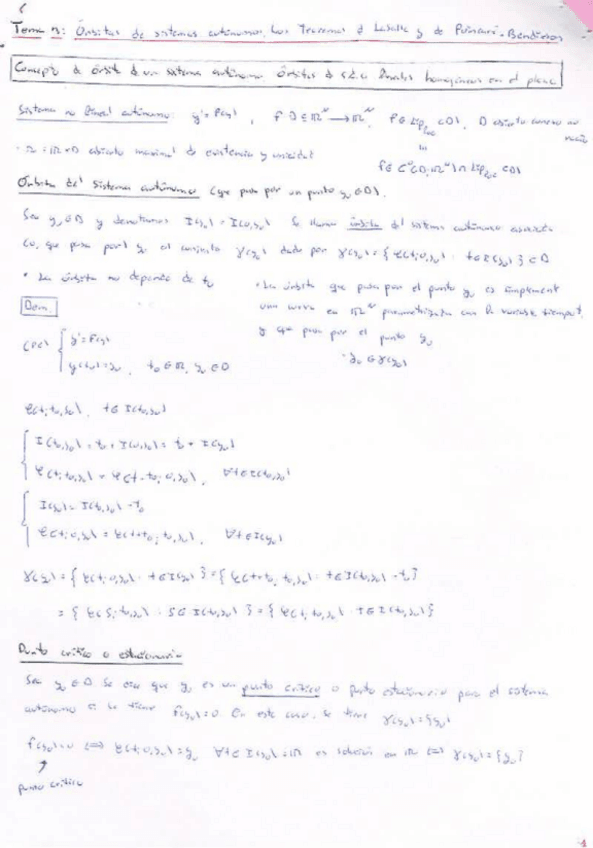 Tema 7: Órbitas de sistemas autónomos. Los Teoremas de LaSalle y de Poincaré-Bendixson
Concepto de órbita de un sistema autónomo. Órbitas de s.d.o. lineales homogéneos en el plano
Sistema no lineal autónomo: y'=f(y), f: D⊂ℝᴺ → ℝᴺ, f ∈ Lip_loc (D), D abierto conexo no vacío
f ∈ C⁰(D;ℝᴺ) ∩ Lip_loc (D)
· Ω = ℝ×D abierto maximal de existencia y unicidad
Órbita del sistema autónomo (que pasa por un punto y₀ ∈ D).
Sea y₀ ∈ D y denotamos I(y₀) = I(0,y₀). Se llama órbita del sistema autónomo
que pasa por y₀ al conjunto γ(y₀) dado por γ(y₀) = { φ(t;0,y₀) : t ∈ I(y₀) } ⊂ D
· La órbita no depende de t₀
· La órbita que pasa por el punto y₀ es simplemente
una curva en ℝᴺ parametrizada con la variable tiempo t,
y que pasa por el punto y₀
y₀ ∈ γ(y₀)
Dem.
(PC) { y'=f(y)
y(t₀)=y₀, t₀ ∈ ℝ, y₀ ∈ D
φ(t;t₀,y₀), t ∈ I(t₀,y₀)
{ I(t₀,y₀) = t₀ + I(0,y₀) = t₀ + I(y₀)
φ(t;t₀,y₀) = φ(t-t₀;0,y₀), ∀t ∈ I(t₀,y₀)
{ I(y₀) = I(t₀,y₀) - t₀
φ(t;0,y₀) = φ(t+t₀;t₀,y₀), ∀t ∈ I(y₀)
γ(y₀) = { φ(t;0,y₀) : t ∈ I(y₀) } = { φ(t+t₀;t₀,y₀) : t ∈ I(t₀,y₀) - t₀ }
= { φ(s;t₀,y₀) : s ∈ I(t₀,y₀) } = { φ(t;t₀,y₀) : t ∈ I(t₀,y₀) }
Punto crítico o estacionario
Sea y₀ ∈ D. Se dice que y₀ es un punto crítico o punto estacionario para el sistema
autónomo si se tiene f(y₀)=0. En este caso, se tiene γ(y₀)={y₀}
f(y₀)=0 ⟺ φ(t;0,y₀)=y₀ ∀t ∈ I(y₀)=ℝ es solución en ℝ ⟺ γ(y₀)={y₀}
↑
punto crítico
1